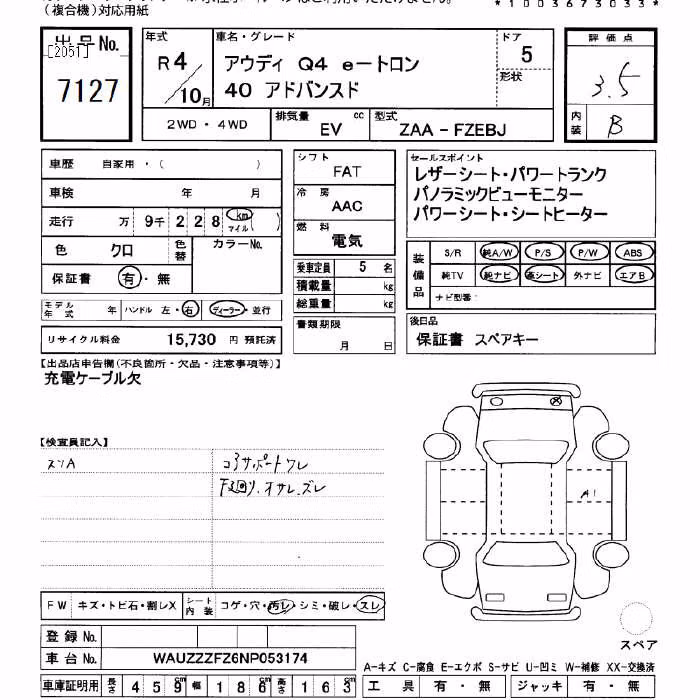 (複合機)対応用紙
*1003673033*
出品No.
[2051]
7127
年式
R4
10月
車名・グレード
アウディ Q4 eートロン
40 アドバンスド
ドア
5
形状
2WD・4WD
排気量 cc
EV
型式
ZAA-FZEBJ
評価点
3.5
内装
B
車歴 自家用・( )
車検 年 月
走行 万 9千 2 2 8 km マイル ( )
色 クロ
色替
カラーNo.
保証書 有・無
モデル年式 年
ハンドル 左・右
ディーラー・並行
リサイクル料金 15,730 円 預託済
シフト
FAT
冷房
AAC
燃料
電気
乗車定員 5 名
積載量 kg
総重量 kg
書類期限
月 日
セールスポイント
レザーシート・パワートランク
パノラミックビューモニター
パワーシート・シートヒーター
装備品
S/R 純A/W P/S P/W ABS
純TV 純ナビ 革シート 外ナビ エアB
ナビ型番:
後日品
保証書 スペアキー
【出品店申告欄(不良箇所・欠品・注意事項等)】
充電ケーブル欠
【検査員記入】
スソA
コアサポートワレ
A1
FW キズ・トビ石・割レX
シート内装 コゲ・穴・汚レ・シミ・破レ・スレ
登録 No.
車台 No. WAUZZZFZ6NP053174
車庫証明用 長さ 4 5 9 cm 幅 1 8 6 cm 高さ 1 6 3 cm
スペア
A-キズ C-腐食 E-エクボ S-サビ U-凹ミ W-補修 XX-交換済
工具 有・無 ジャッキ 有・無